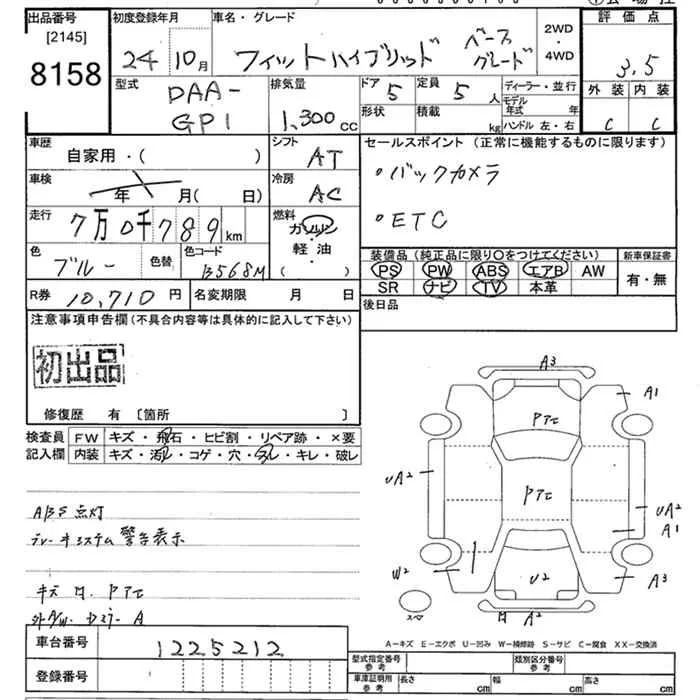 出品番号
[2145]
8158
初度登録年月
24 10月
車名・グレード
フィットハイブリッド ベース グレード
2WD
・
4WD
評価点
3.5
外装 内装
C C
型式
DAA-
GP1
排気量
1,300 cc
ドア 5
定員 5 人
形状
積載 kg
ディーラー・並行
モデル年式 年
ハンドル 左・右
車歴
自家用・( )
シフト AT
車検
年 月(日)
冷房 AC
走行
7万0千789km
燃料
ガソリン
・
軽油
( )
色 ブルー
色替
色コード B568M
R券 10,710円
名変期限 月 日
セールスポイント (正常に機能するものに限ります)
・バックカメラ
・ETC
装備品(純正品に限り○をつけてください)
PS PW ABS エアB AW
SR ナビ TV 本革
新車保証書
有・無
後日品
注意事項申告欄(不具合内容等は具体的に記入して下さい)
初出品
修復歴 有 [箇所 ]
検査員
記入欄
FW キズ・飛石・ヒビ割・リペア跡・×要
内装 キズ・汚レ・コゲ・穴・スレ・キレ・破レ
ABS 点灯
ブレーキシステム 警告表示
A3
A1
UA2
UA2
A1
W2
U2
A3
A2
スペア
A-キズ E-エクボ U-凹み W-補修跡 S-サビ C-腐食 XX-交換済
車台番号 1225212
登録番号
型式指定番号
参考
類別区分番号
参考
車庫証明用
参考
長さ cm
幅 cm
高さ cm